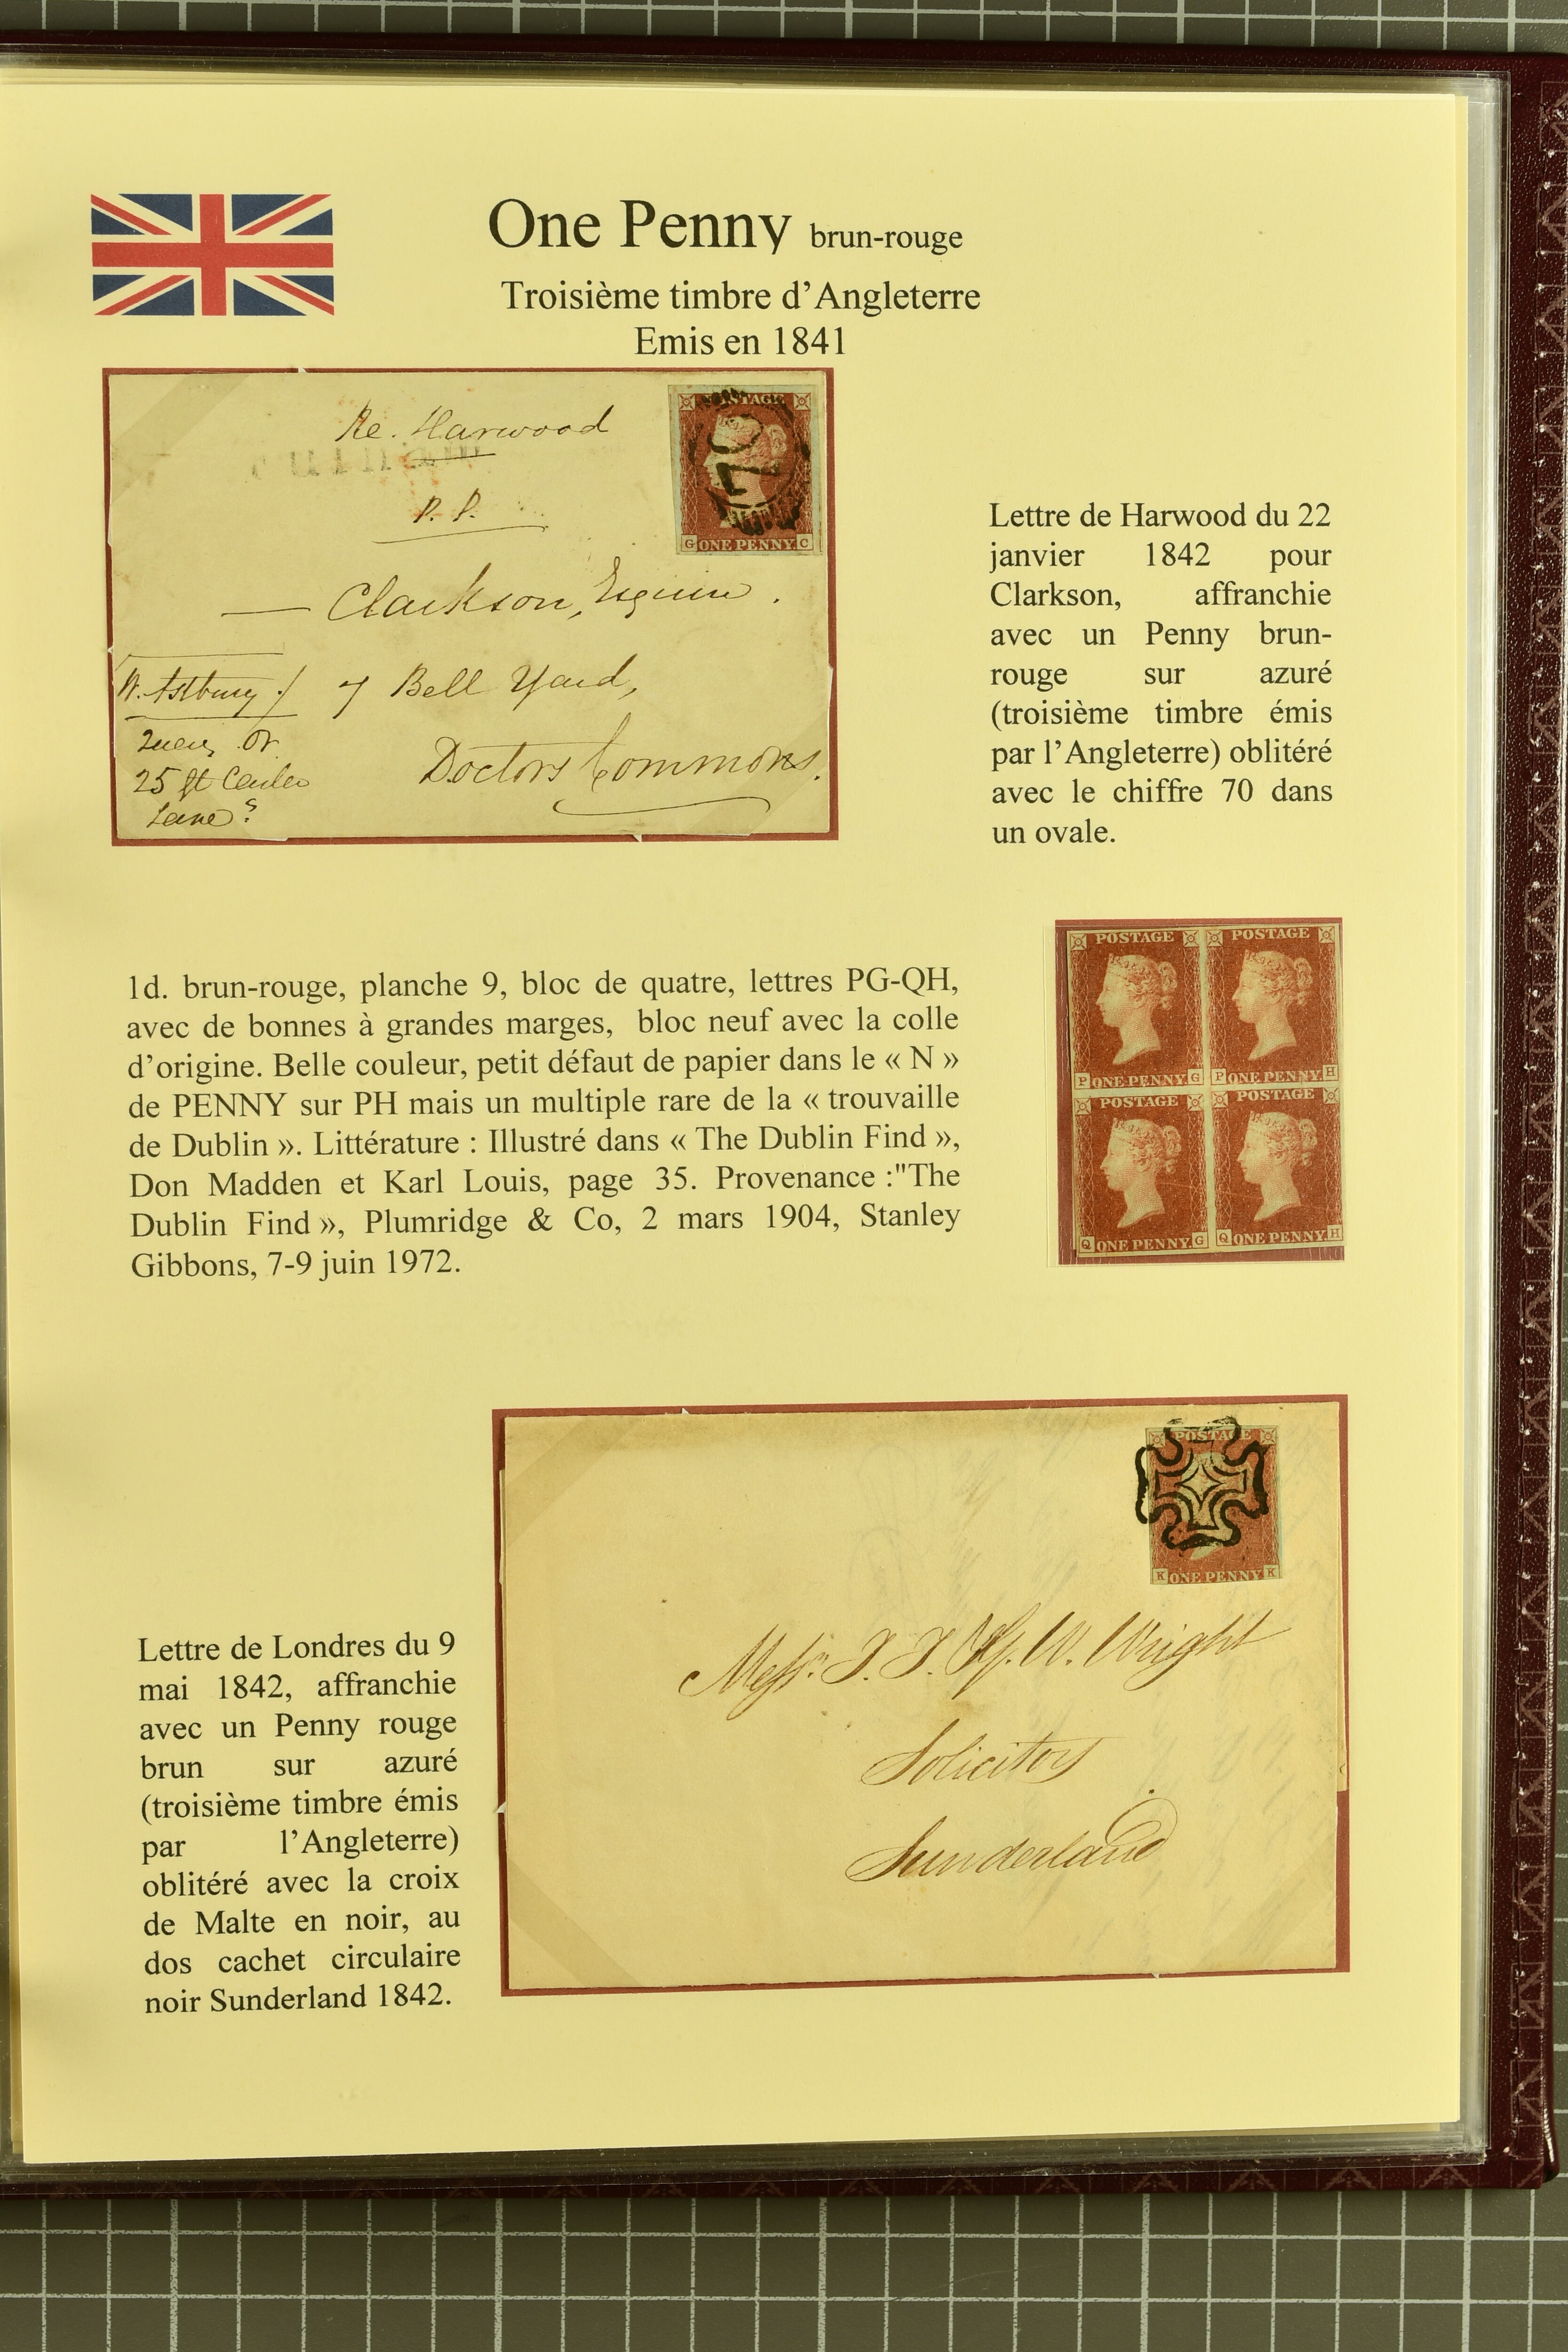 One Penny brun-rouge
Troisième timbre d’Angleterre
Emis en 1841
Re. Harwood
P. P.
POSTAGE
70
G ONE PENNY C
Clarkson, Esquire.
7 Bell Yard,
Doctors Commons.
W. Astbury
or
25
Lane?
Lettre de Harwood du 22
janvier 1842 pour
Clarkson, affranchie
avec un Penny brun-
rouge sur azuré
(troisième timbre émis
par l’Angleterre) oblitéré
avec le chiffre 70 dans
un ovale.
1d. brun-rouge, planche 9, bloc de quatre, lettres PG-QH,
avec de bonnes à grandes marges, bloc neuf avec la colle
d’origine. Belle couleur, petit défaut de papier dans le « N »
de PENNY sur PH mais un multiple rare de la « trouvaille
de Dublin ». Littérature : Illustré dans « The Dublin Find »,
Don Madden et Karl Louis, page 35. Provenance :"The
Dublin Find », Plumridge & Co, 2 mars 1904, Stanley
Gibbons, 7-9 juin 1972.
POSTAGE POSTAGE
P ONE PENNY G P ONE PENNY H
POSTAGE POSTAGE
Q ONE PENNY G Q ONE PENNY H
POSTAGE
K ONE PENNY K
W. Wright
Solicitors
Sunderland
Lettre de Londres du 9
mai 1842, affranchie
avec un Penny rouge
brun sur azuré
(troisième timbre émis
par l’Angleterre)
oblitéré avec la croix
de Malte en noir, au
dos cachet circulaire
noir Sunderland 1842.